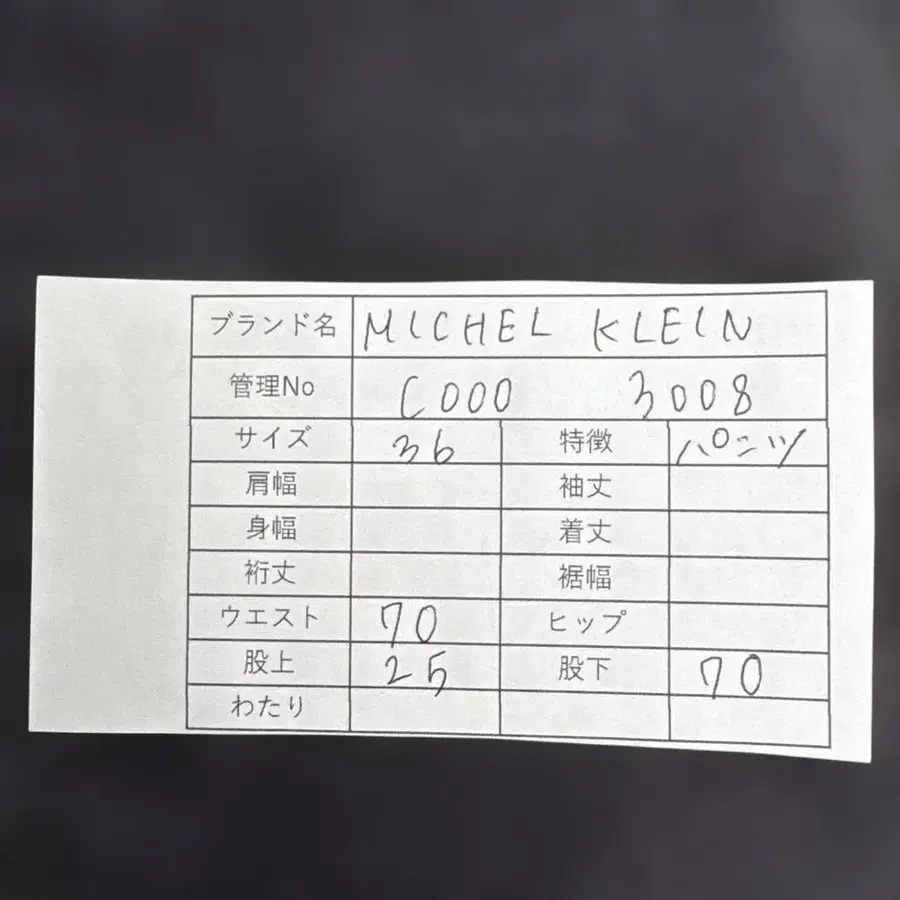 ブランド名 MICHEL KLEIN
管理No C000 3008
サイズ 36 特徴 パンツ
肩幅 袖丈
身幅 着丈
裄丈 裾幅
ウエスト 70 ヒップ
股上 25 股下 70
わたり